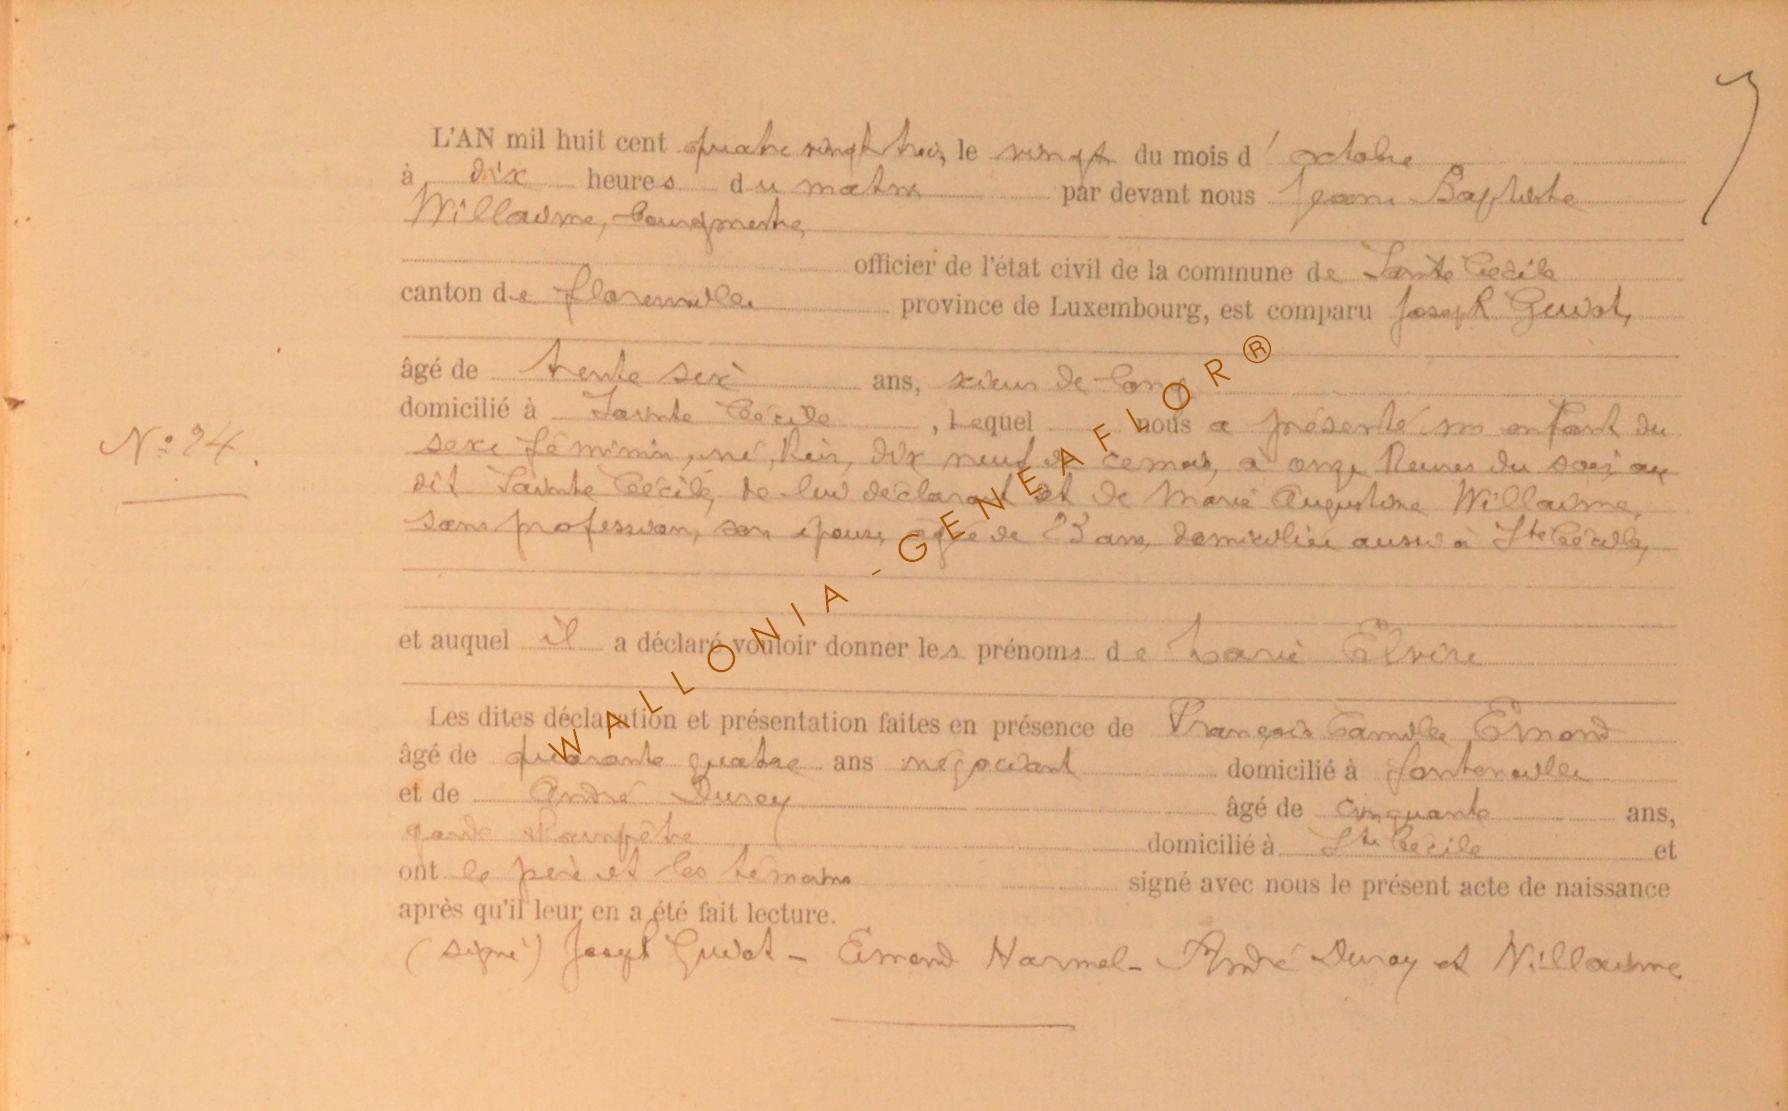 L'AN mil huit cent quatre vingt trois, le vingt du mois d'octobre
à dix heures du matin par devant nous Jean Baptiste
Willaime, bourgmestre,
officier de l'état civil de la commune de Sainte Cécile
canton de Florenville province de Luxembourg, est comparu Joseph Guiot,
âgé de trente six ans, scieur de long
domicilié à Sainte Cécile, Lequel nous a présenté un enfant du
sexe féminin, né, hier, dix neuf de ce mois, à onze heures du soir, au
dit Sainte Cécile, de lui déclarant et de Marie Augustine Willaime,
sans profession, son épouse, agée de 23 ans, domiciliée aussi à Ste Cécile,
et auquel il a déclaré vouloir donner les prénoms de Marie Elvire
Les dites déclaration et présentation faites en présence de François Camille Emond
âgé de quarante quatre ans négociant domicilié à Fontenoille
et de André Duroy âgé de cinquante ans,
garde champêtre domicilié à Ste Cécile et
ont le père et les témoins signé avec nous le présent acte de naissance
après qu'il leur en a été fait lecture.
(signé) Joseph Guiot - Emond Harmel - André Duroy et Willaime
N° 24.
WALLONIA - GENEAFLOR®